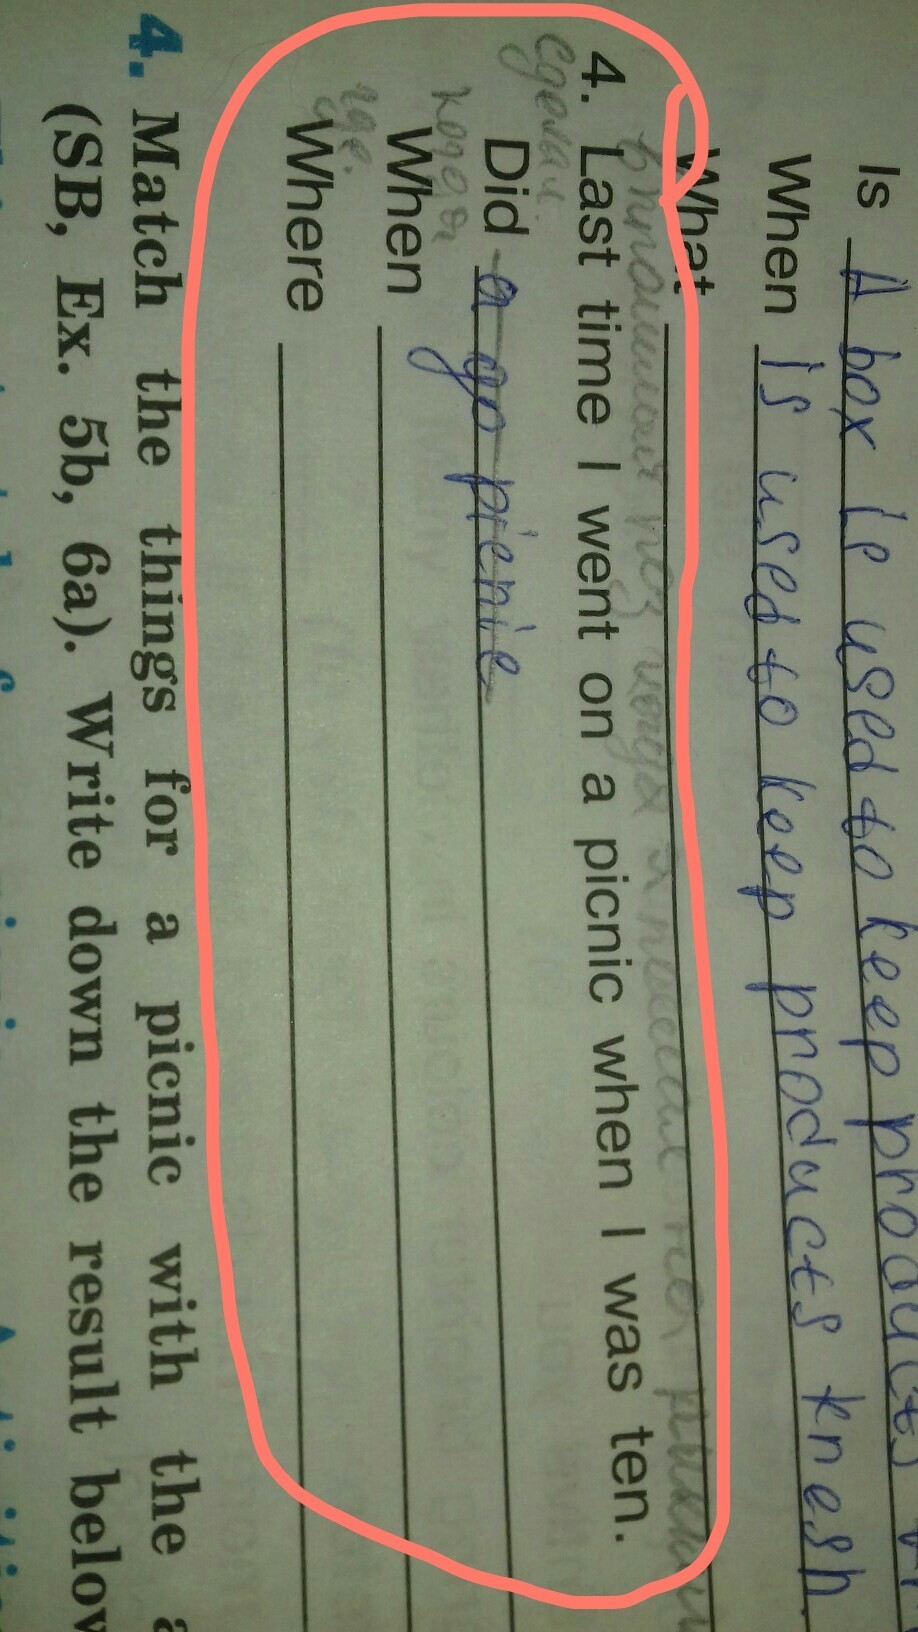 Is A box is used to keep products
When is used to keep products knesh
What
впрошлый раз когда я на
4. Last time I went on a picnic when I was ten.
сделал.
Did a go picnic
когда
When
где.
Where
4. Match the things for a picnic with the
(SB, Ex. 5b, 6a). Write down the result below